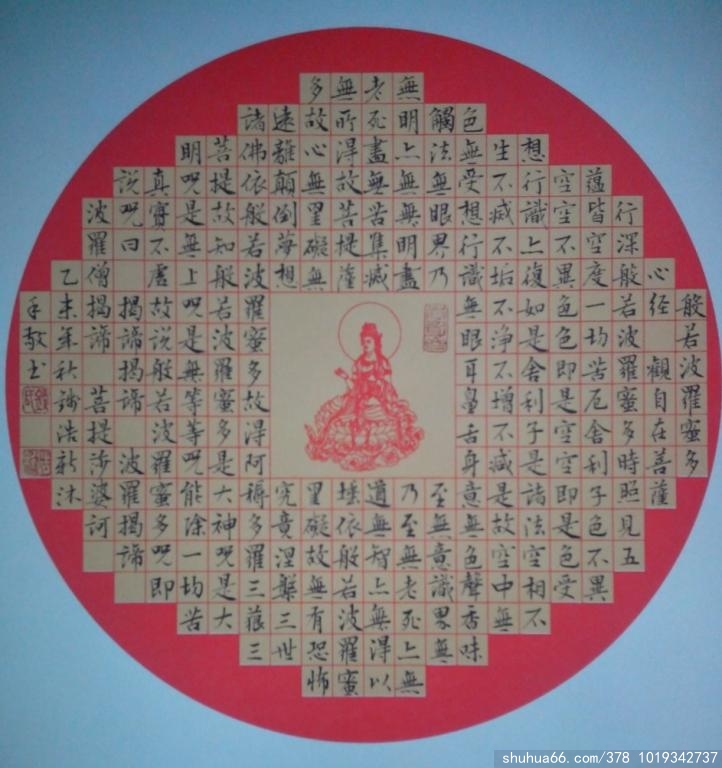 般若波羅蜜多
心經 觀自在菩薩
行深般若波羅蜜多時照見五
蘊皆空度一均苦厄舍利子色不異
空空不異色色即是空空即是色受
想行識亦復如是舍利子是諸法空相不
生不滅不垢不淨不增不減是故空中無
色無受想行識無眼耳鼻舌身意無色聲香味
觸法無眼界乃至無意識界無
無明亦無無明盡乃至無老死亦無
老死盡無苦集滅道無智亦無得以
無所得故菩提薩埵依般若波羅蜜
多故心無罣礙無罣礙故無有恐怖
遠離顛倒夢想究竟涅槃三世
諸佛依般若波羅蜜多故得阿耨多羅三藐三
菩提故知般若波羅蜜多是大神咒是大
明咒是無上咒是無等等咒能除一均苦
真實不虛故說般若波羅蜜多咒即
說咒曰 揭諦揭諦 波羅揭諦
波羅僧揭諦 菩提沙婆訶
乙未年秋謝浩新沐
手敬書
shuhua66.com/378 1019342737